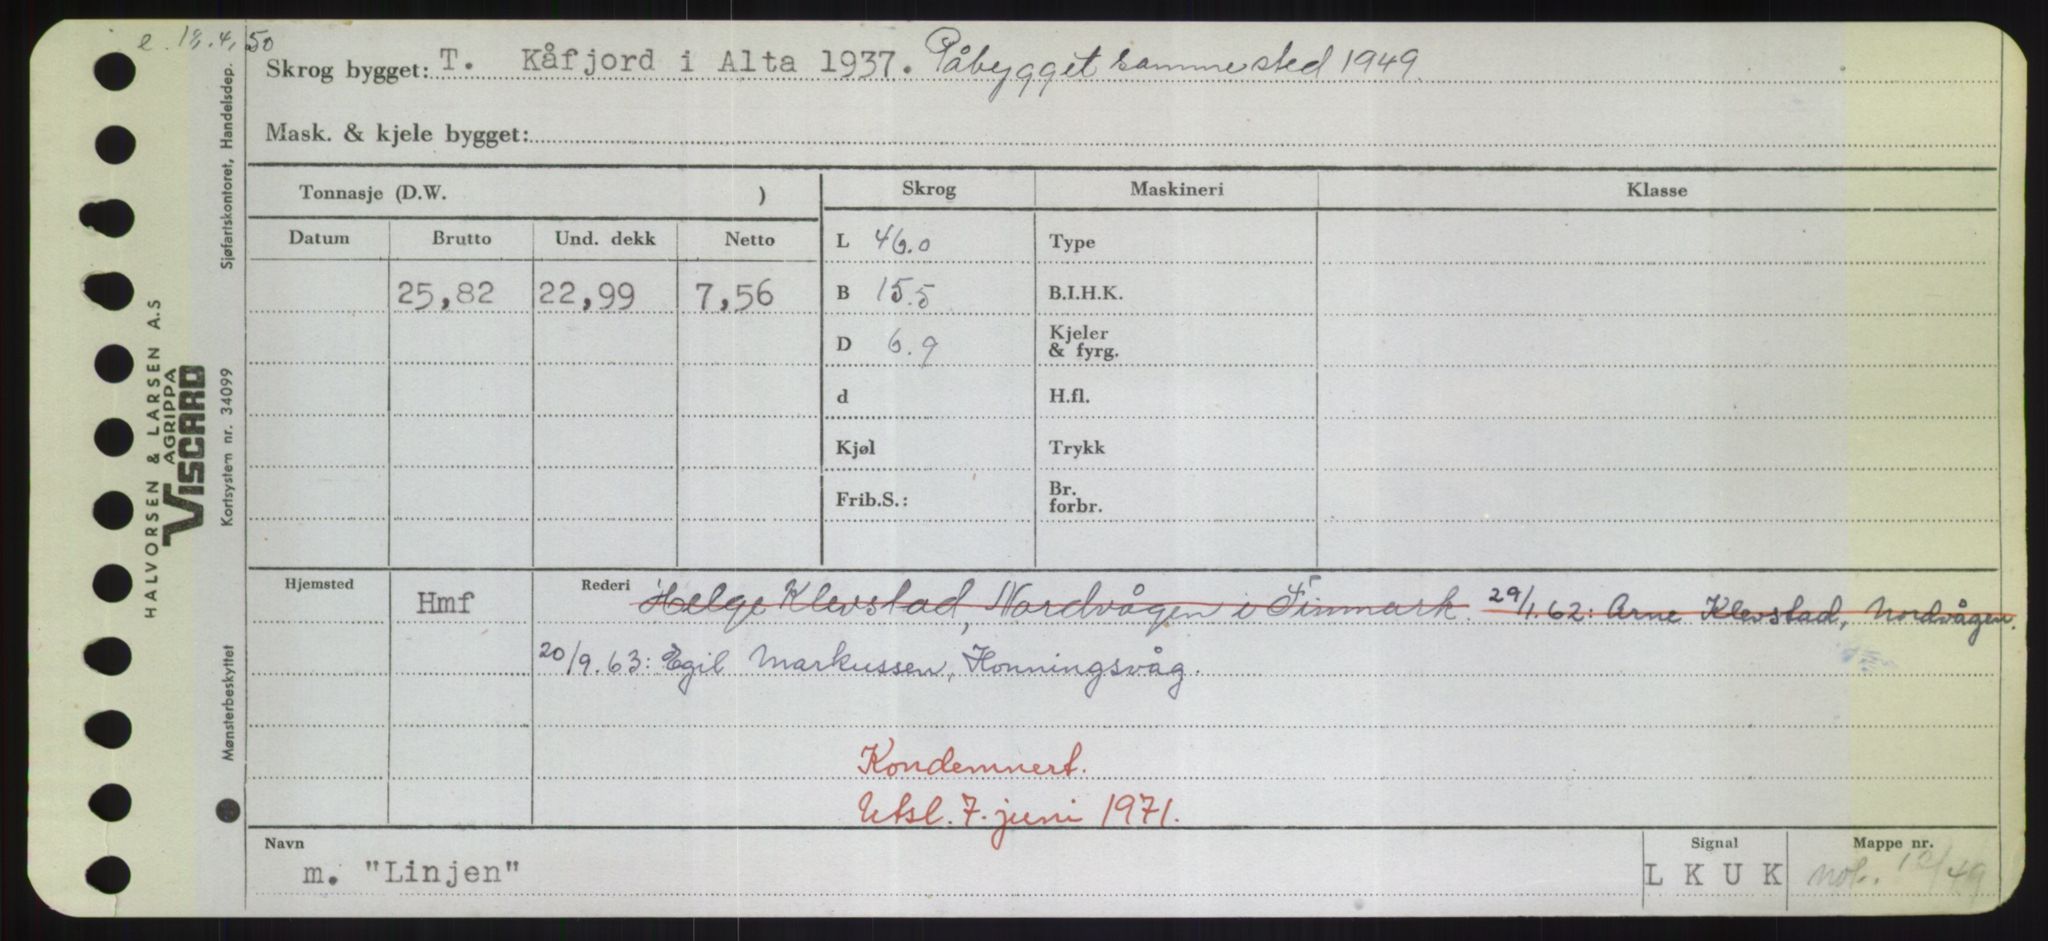 e. 18.4.50
Skrog bygget: T. Kåfjord i Alta 1937. Påbygget samme sted 1949
Mask. & kjele bygget:
Tonnasje (D.W. )
Skrog
Maskineri
Klasse
Datum
Brutto
Und. dekk
Netto
25,82
22,99
7,56
L 46.0
B 15.5
D 6.9
d
Kjøl
Frib.S.:
Type
B.I.H.K.
Kjeler
& fyrg.
H.fl.
Trykk
Br.
forbr.
Hjemsted
Hmf
Rederi
Helge Klevstad, Nordvågen i Finmark. 29/1.62: Arne Klevstad, Nordvågen.
20/9.63: Egil Markussen, Honningsvåg.
Kondemnert.
Utsl. 7. juni 1971.
Navn
m. "Linjen"
Signal
L K U K
Mappe nr.
not. 12/49
HALVORSEN & LARSEN A.S
AGRIPPA
VISCARD
Sjøfartskontoret, Handelsdep.
Kortsystem nr. 34099
Mønsterbeskyttet